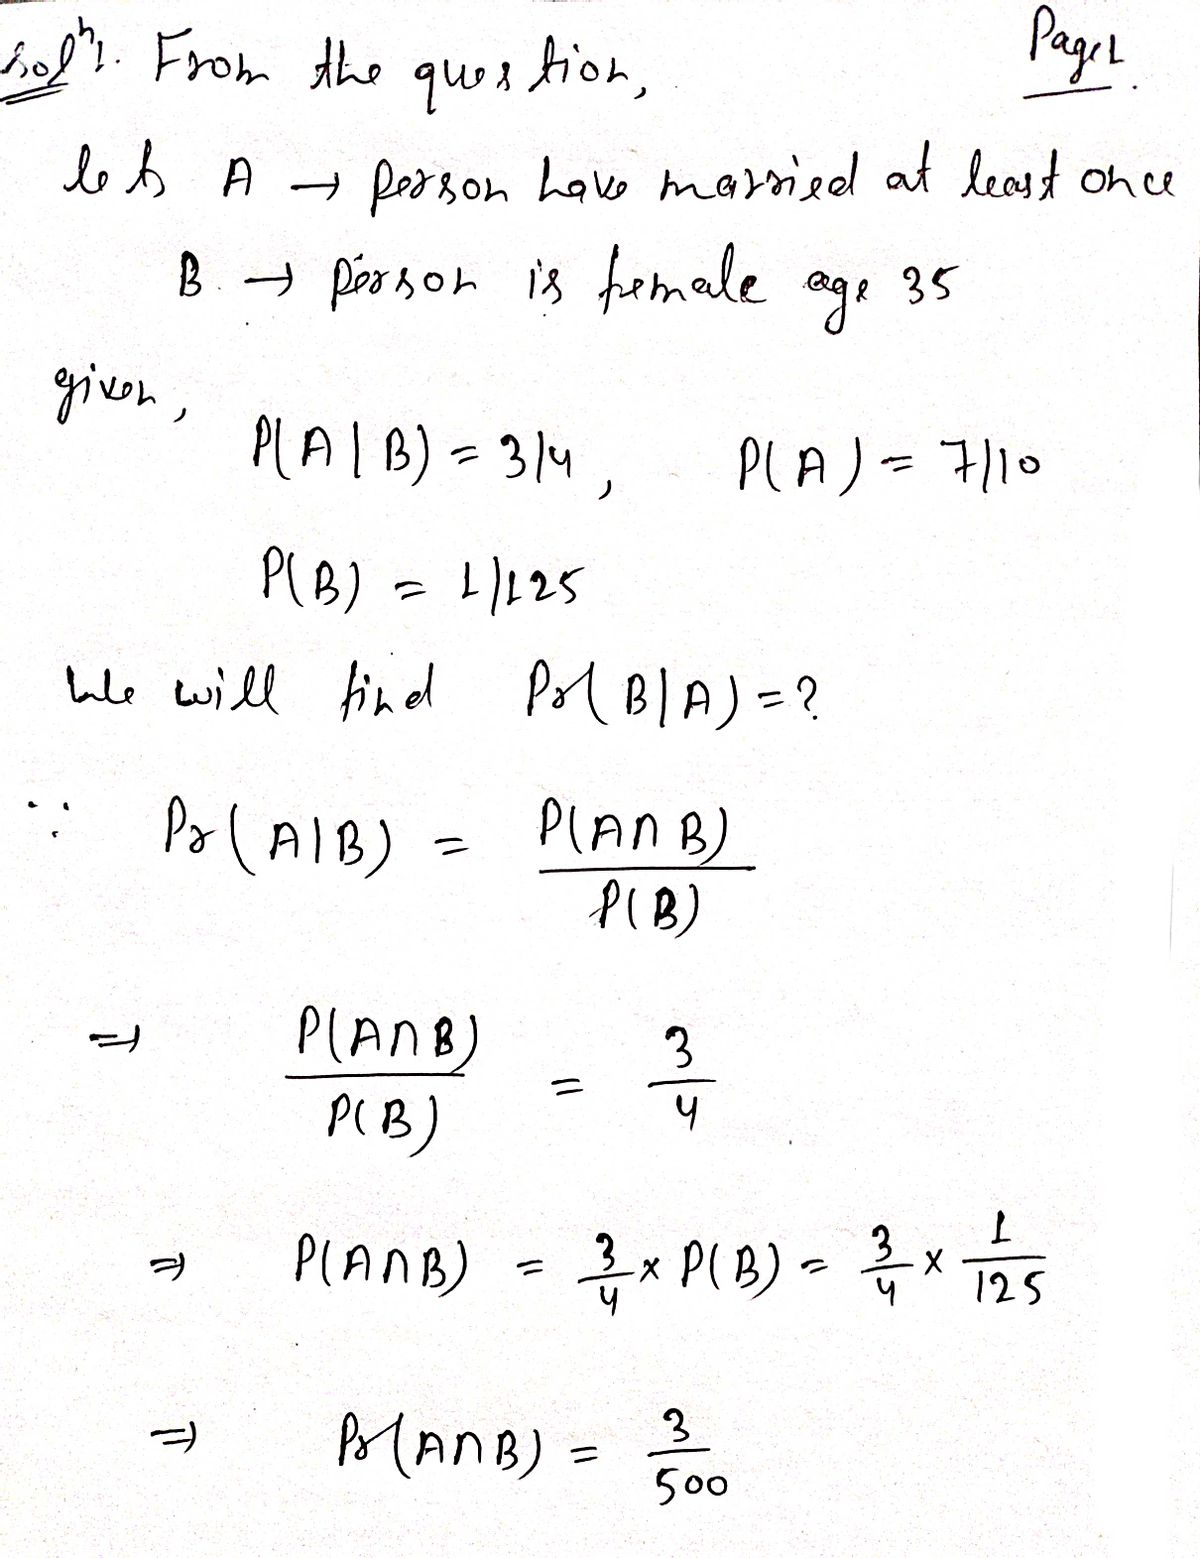 Solⁿ. From the question,
Page 1
let A → person have married at least once
B → person is female age 35
given,
P(A|B) = 3/4, P(A) = 7/10
P(B) = 1/125
We will find Pr(B|A) = ?
∵ Pr(A|B) = P(A∩B)
P(B)
⇒ P(A∩B) = 3
P(B) 4
⇒ P(A∩B) = 3/4 × P(B) = 3/4 × 1/125
⇒ Pr(A∩B) = 3/500